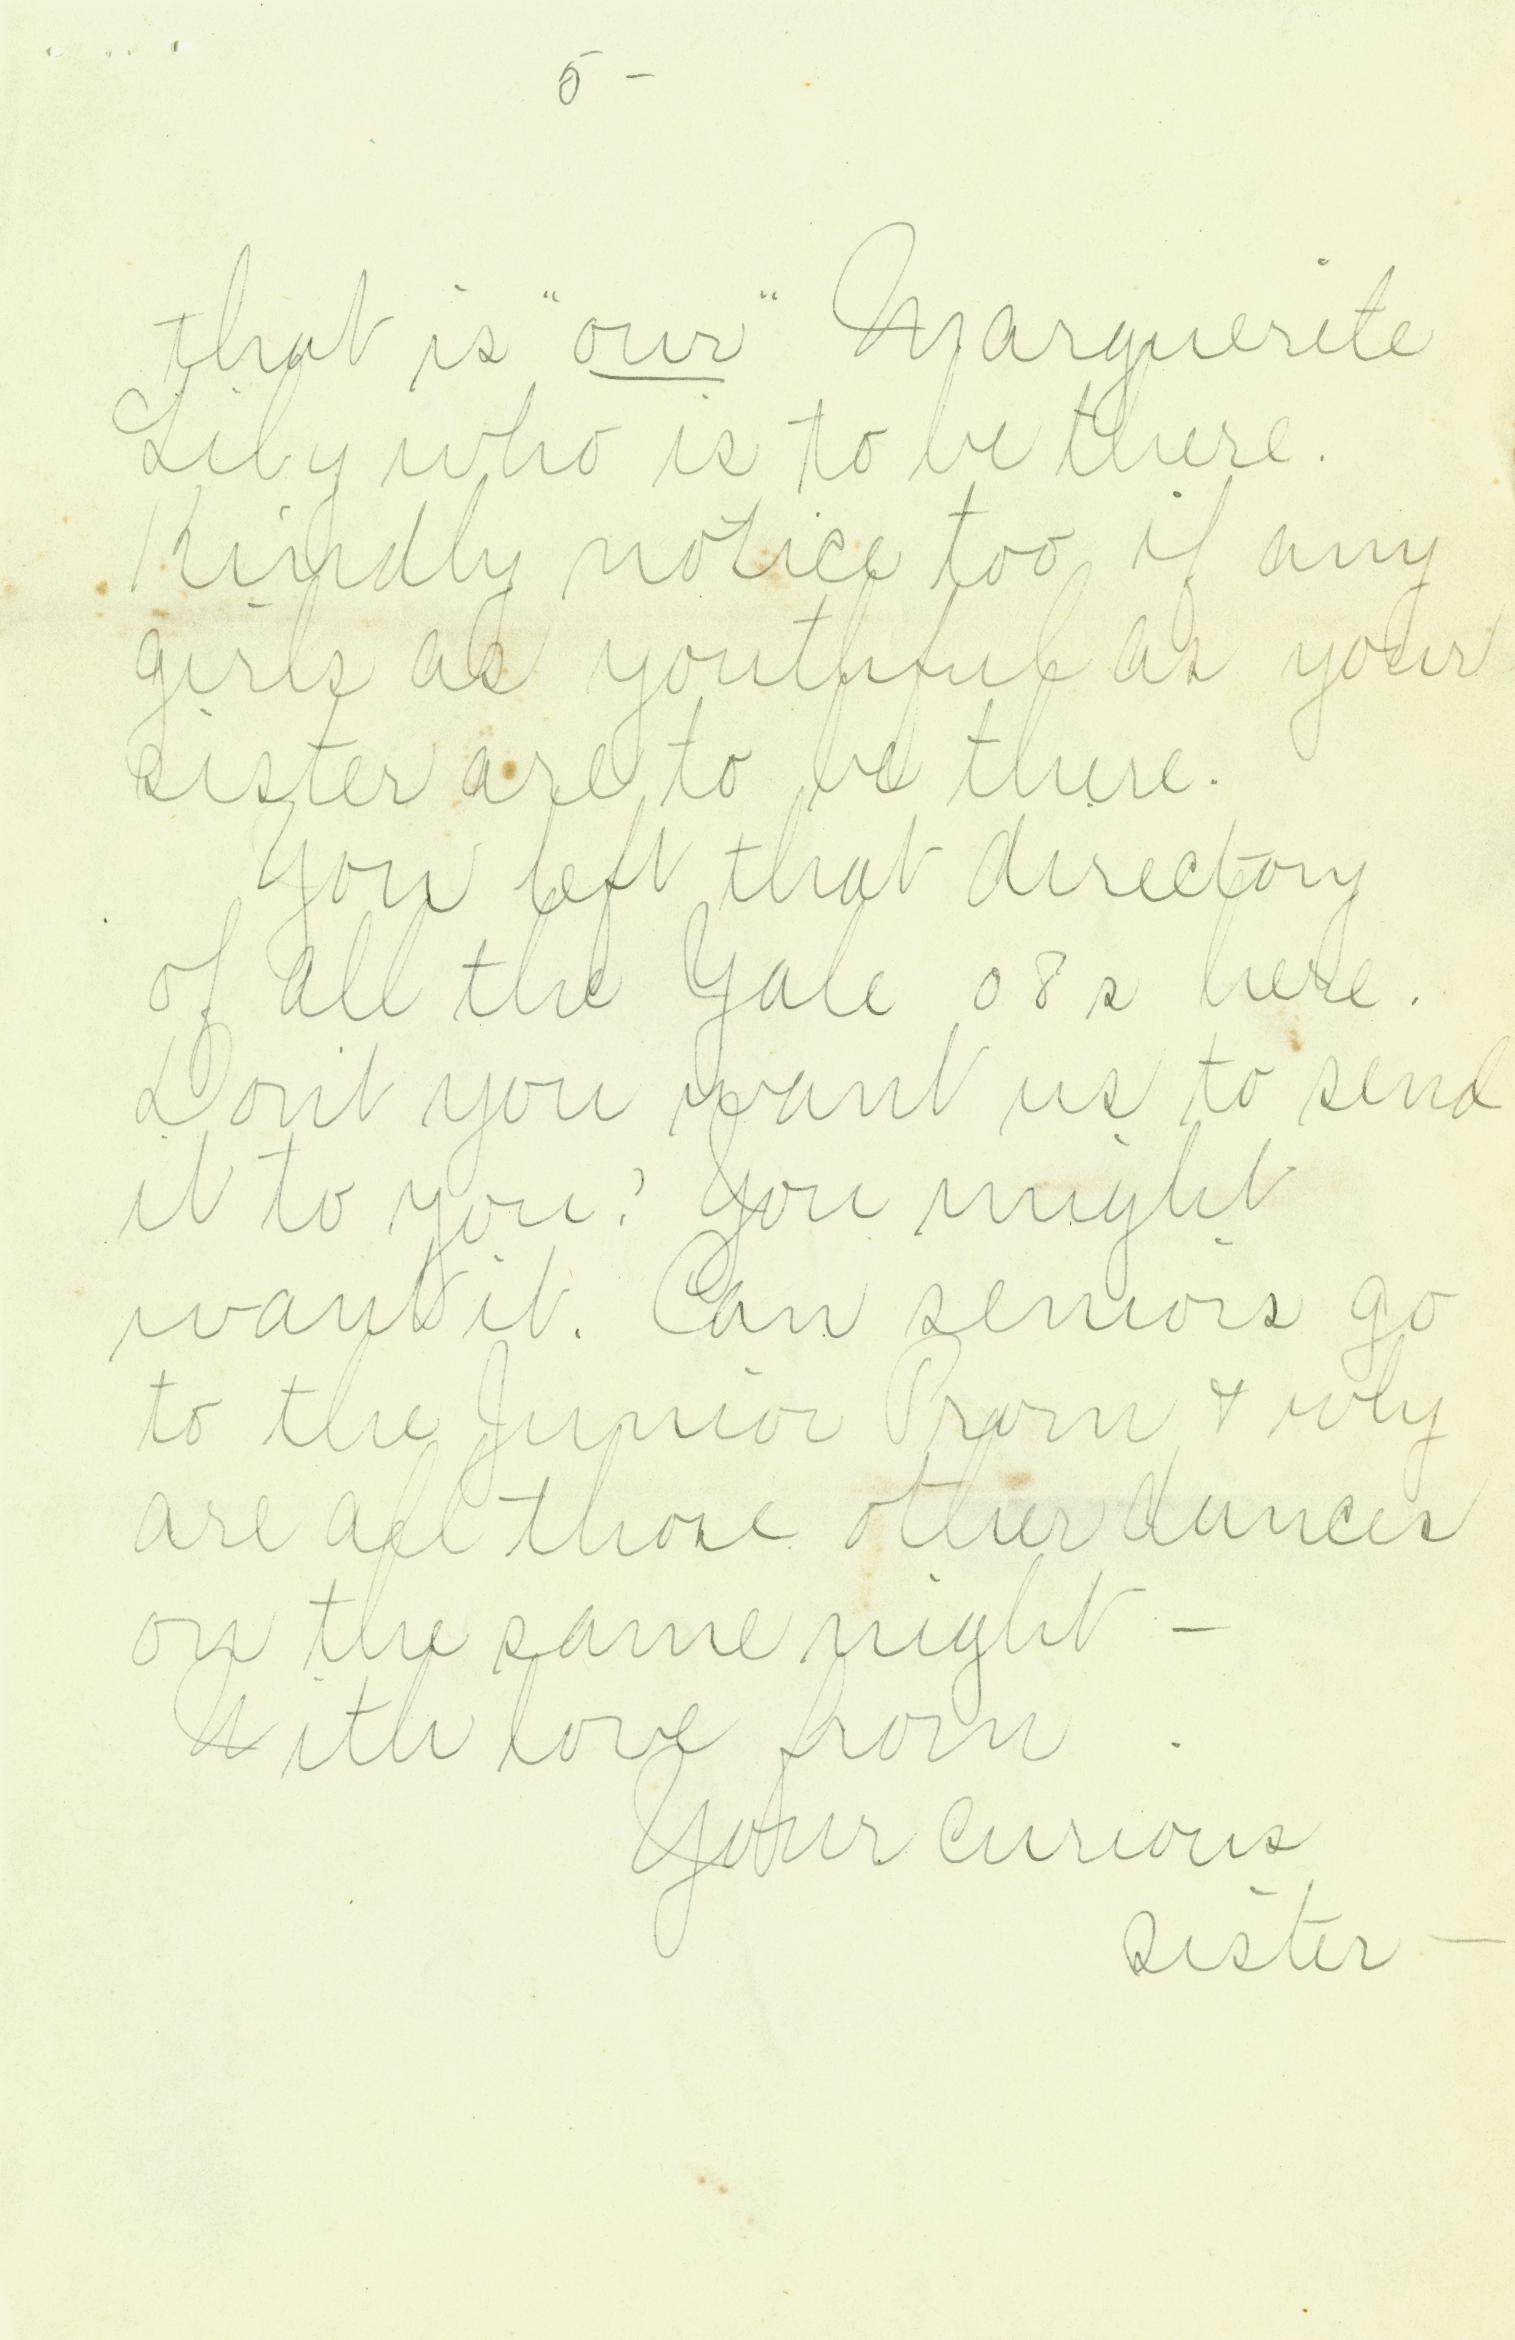 5 -
that is "our" Marguerite
Lily who is to be there.
Kindly notice too if any
girls as youthful as your
sister are to be there.
You left that directory
of all the Yale 08s here.
Don't you want us to send
it to you? You might
want it. Can seniors go
to the Junior Prom & why
are all those other dances
on the same night -
With love from
Your curious
sister -